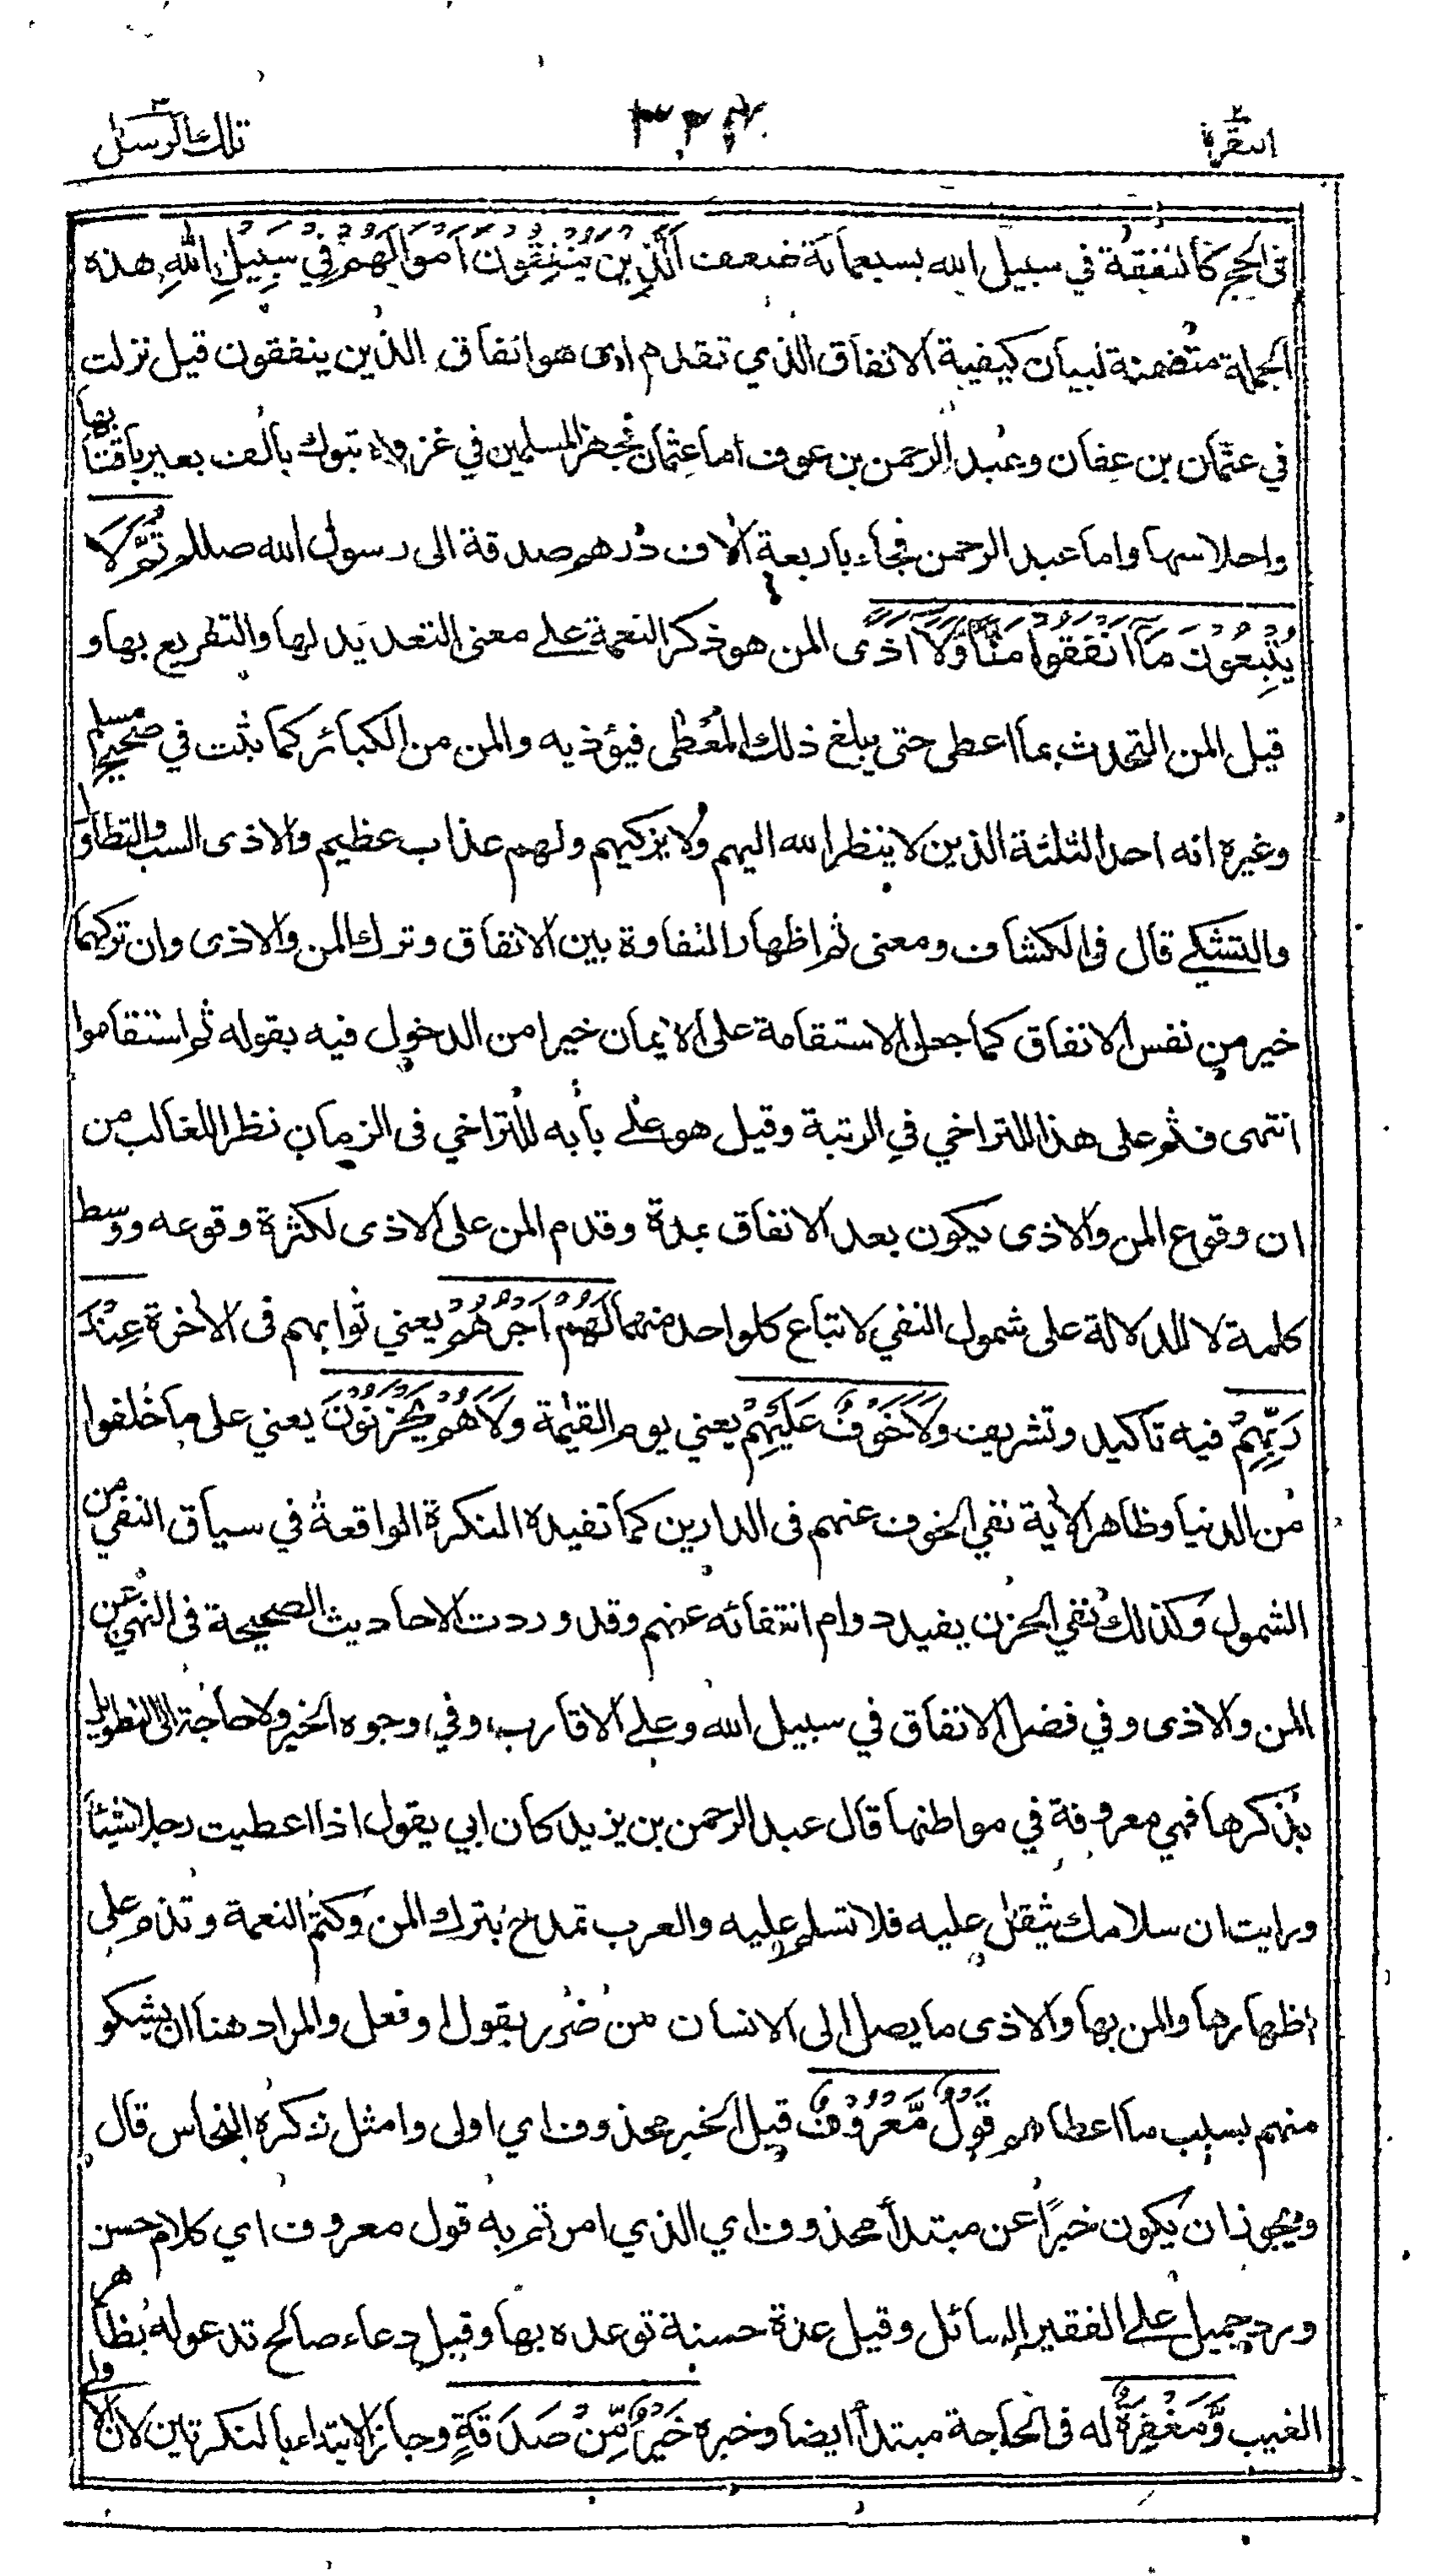 البقرة ٢
تلك الرسل ٣
في الحج كالنفقة في سبيل الله بسبعمائة ضعف اَلَّذِيْنَ يُنْفِقُوْنَ اَمْوَالَهُمْ فِيْ سَبِيْلِ اللهِ هذه
الجملة متضمنة لبيان كيفية الانفاق الذي تقدم اى هو انفاق الذين ينفقون قيل نزلت
في عثمان بن عفان وعبد الرحمن بن عوف اما عثمان فجهز المسلمين في غزوة تبوك بألف بعير بأقتابها
واحلاسها واما عبد الرحمن فجاء باربعة آلاف درهم صدقة الى رسول الله صللم ثُمَّ لَا
يُتْبِعُوْنَ مَآ اَنْفَقُوْا مَنًّا وَّلَآ اَذًى المن هو ذكر النعمة علے معنى التعديد لها والتقريع بها و
قيل المن التحدث بما اعطى حتى يبلغ ذلك المُعْطٰى فيؤذيه والمن من الكبائر كما ثبت في صحيح مسلم
وغيره انه احد الثلثة الذين لا ينظر الله اليهم ولا يزكيهم ولهم عذاب عظيم والاذى السب والتطاول
والتشكے قال فى الكشاف ومعنى ثم اظهار التفاوة بين الانفاق وترك المن والاذى وان تركهما
خير من نفس الانفاق كما جعل الاستقامة على الايمان خيرا من الدخول فيه بقوله ثم استقاموا
انتهى فثم على هذا للتراخي في الرتبة وقيل هو علے بابه للتراخي فى الزمان نظرا للغالب من
ان وقوع المن والاذى يكون بعد الانفاق بمدة وقدم المن على الاذى لكثرة وقوعه ووسط
كلمة لا للدلالة على شمول النفي لاتباع كل واحد منهما لَهُمْ اَجْرُهُمْ يعني ثوابهم فى الاخرة عِنْدَ
رَبِّهِمْ فيه تأكيد وتشريف وَلَا خَوْفٌ عَلَيْهِمْ يعني يوم القيٰمة وَلَا هُمْ يَحْزَنُوْنَ يعني على ما خلفوا
من الدنيا وظاهر الآية نفي الخوف عنهم فى الدارين كما تفيده النكرة الواقعة في سياق النفي من
الشمول وكذلك نفي الحزن يفيد دوام انتفائه عنهم وقد وردت الاحاديث الصحيحة فى النهي عن
المن والاذى وفي فضل الانفاق في سبيل الله وعلے الاقارب وفي وجوه الخير ولا حاجة الى التطويل
بذكرها فهي معروفة في مواطنها قال عبد الرحمن بن يزيد كان ابي يقول اذا اعطيت رجلا شيئا
ورايت ان سلامك يثقل عليه فلا تسلم عليه والعرب تمدح بترك المن وكتم النعمة وتذم على
اظهارها والمن بها والاذى ما يصل الى الانسان من ضرر بقول او فعل والمراد هنا ان يشكو
منهم بسبب ما اعطاهم قَوْلٌ مَّعْرُوْفٌ قيل الخبر محذوف اي اولى وامثل ذكره النحاس قال
ويجوز ان يكون خبرًا عن مبتدأ محذوف اي الذي امرتم به قول معروف اي كلام حسن
ورد جميل علے الفقير السائل وقيل عدة حسنة توعده بها وقيل دعاء صالح تدعو له بظاهر
الغيب وَّمَغْفِرَةٌ له فى الحاجة مبتدأ ايضا وخبره خَيْرٌ مِّنْ صَدَقَةٍ وجاز الابتداء بالنكرتين لان الاولى